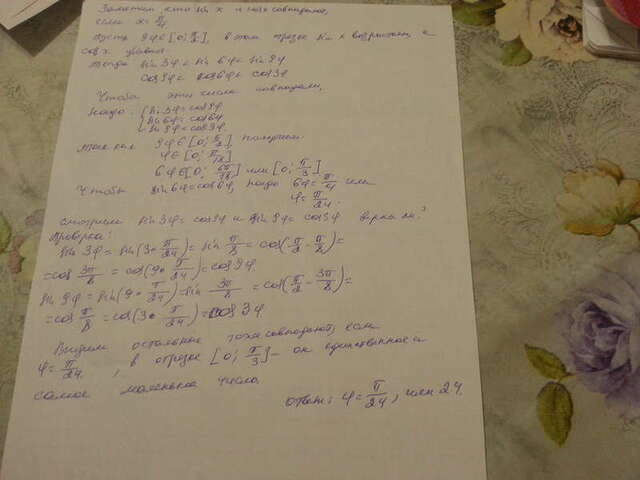 Заметим что sin x и cos x совпадают,
если x = π/4
Пусть 9φ∈[0; π/2], в этом отрезке sin x возрастает, а
cos x убывает.
Тогда sin 3φ < sin 6φ < sin 9φ
cos 9φ < cos 6φ < cos 3φ
Чтобы эти числа совпадали,
надо: { sin 3φ = cos 9φ
sin 6φ = cos 6φ
sin 9φ = cos 3φ
Так как 9φ∈[0; π/2], получаем
φ∈[0; π/18]
6φ∈[0; 6π/18] или [0; π/3]
Чтобы sin 6φ = cos 6φ, надо 6φ = π/4 или
φ = π/24.
Смотрим sin 3φ = cos 9φ и sin 9φ = cos 3φ верна ли?
Проверка:
sin 3φ = sin(3·π/24) = sin π/8 = cos(π/2 - π/8) =
= cos 3π/8 = cos(9·π/24) = cos 9φ.
sin 9φ = sin(9·π/24) = sin 3π/8 = cos(π/2 - 3π/8) =
= cos π/8 = cos(3·π/24) = cos 3φ
Видим остальные тоже совпадают если
φ = π/24, в отрезке [0; π/3] - он единственное и
самое маленькое число.
ответ: φ = π/24, или 24.